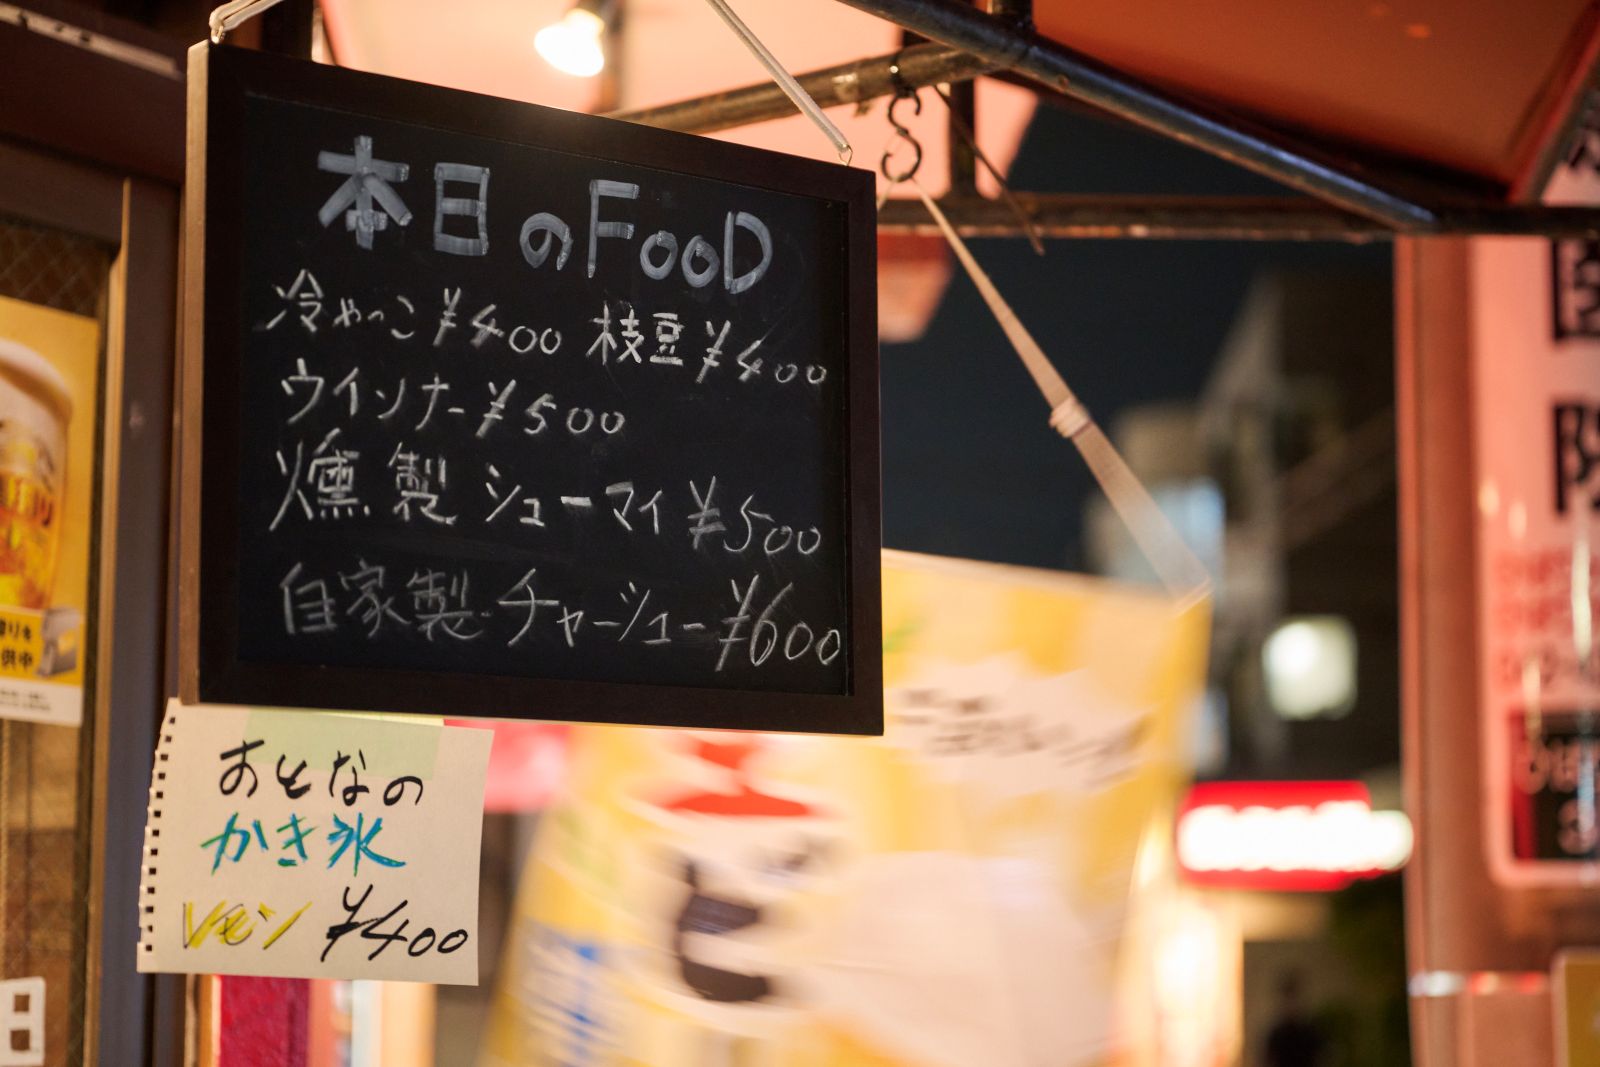 本日のFooD
冷やっこ ¥400 枝豆 ¥400
ウインナー ¥500
燻製 シューマイ ¥500
自家製 チャーシュー ¥600
おとなの
かき氷
レモン ¥400
供中